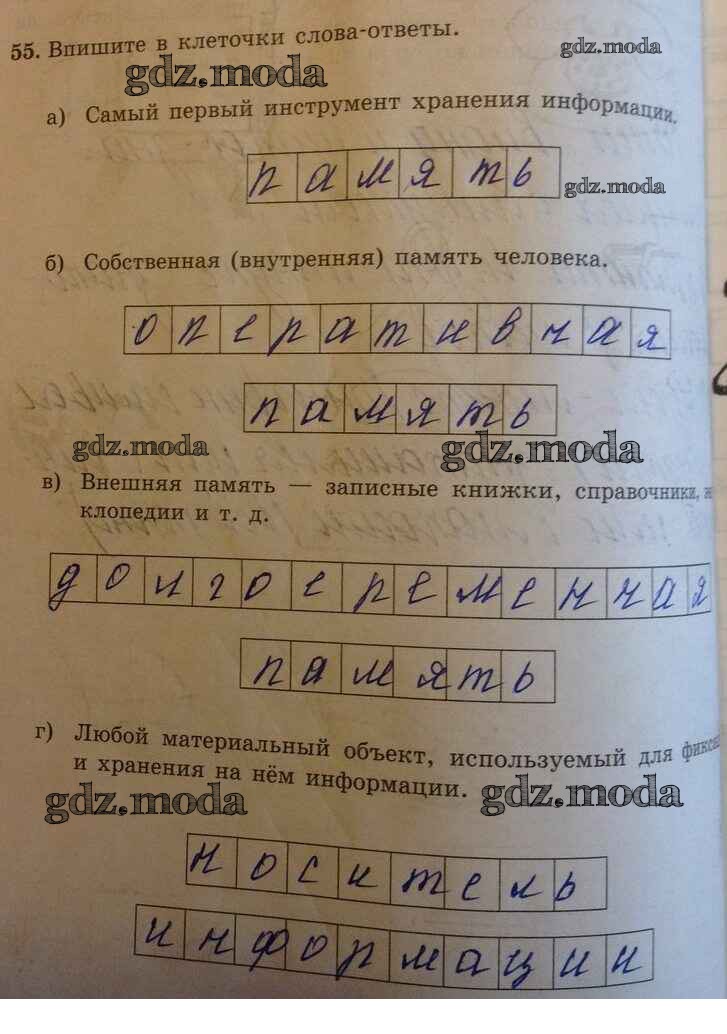 55. Впишите в клеточки слова-ответы.
gdz.moda
gdz.moda
а) Самый первый инструмент хранения информации.
память
gdz.moda
б) Собственная (внутренняя) память человека.
оперативная
память
gdz.moda
gdz.moda
в) Внешняя память — записные книжки, справочники,
клопедии и т. д.
долгосременная
память
г) Любой материальный объект, используемый для
и хранения на нём информации.
gdz.moda
gdz.moda
носитель
информации